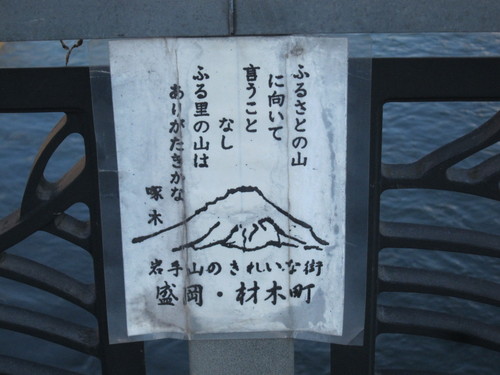 ふるさとの山
に向いて
言うこと
なし
ふる里の山は
ありがたきかな
啄木
岩手山のきれいな街
盛岡・材木町